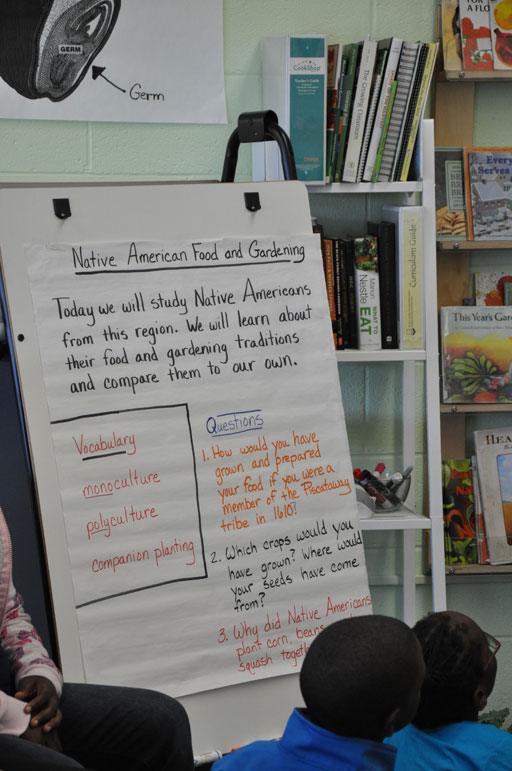 GERM
Germ
FOR
A FLO
CookShop
Teacher's Guide
The Cooking Classroom
Every
Serves
Curriculum Guide
Marion
Nestle
WHAT TO
EAT
This Year's Gard
HEA
Native American Food and Gardening
Today we will study Native Americans
from this region. We will learn about
their food and gardening traditions
and compare them to our own.
Vocabulary
monoculture
polyculture
companion planting
Questions
1. How would you have
grown and prepared
your food if you were a
member of the Piscataway
tribe in 1610?
2. Which crops would you
have grown? Where would
your seeds have come
from?
3. Why did Native Americans
plant corn, beans
squash together